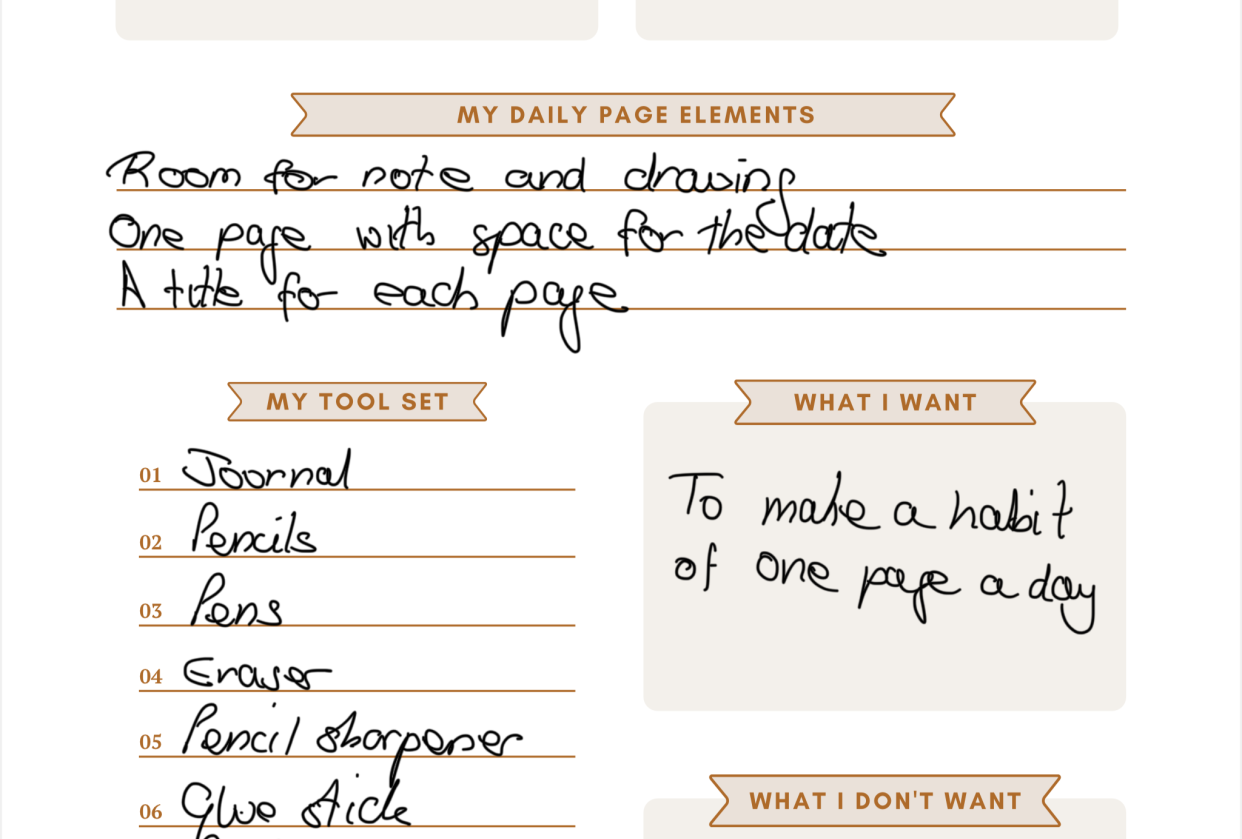 MY DAILY PAGE ELEMENTS
Room for note and drawing
One page with space for the date
A title for each page
MY TOOL SET
01 Journal
02 Pencils
03 Pens
04 Eraser
05 Pencil sharpener
06 Glue stick
WHAT I WANT
To make a habit
of one page a day
WHAT I DON'T WANT